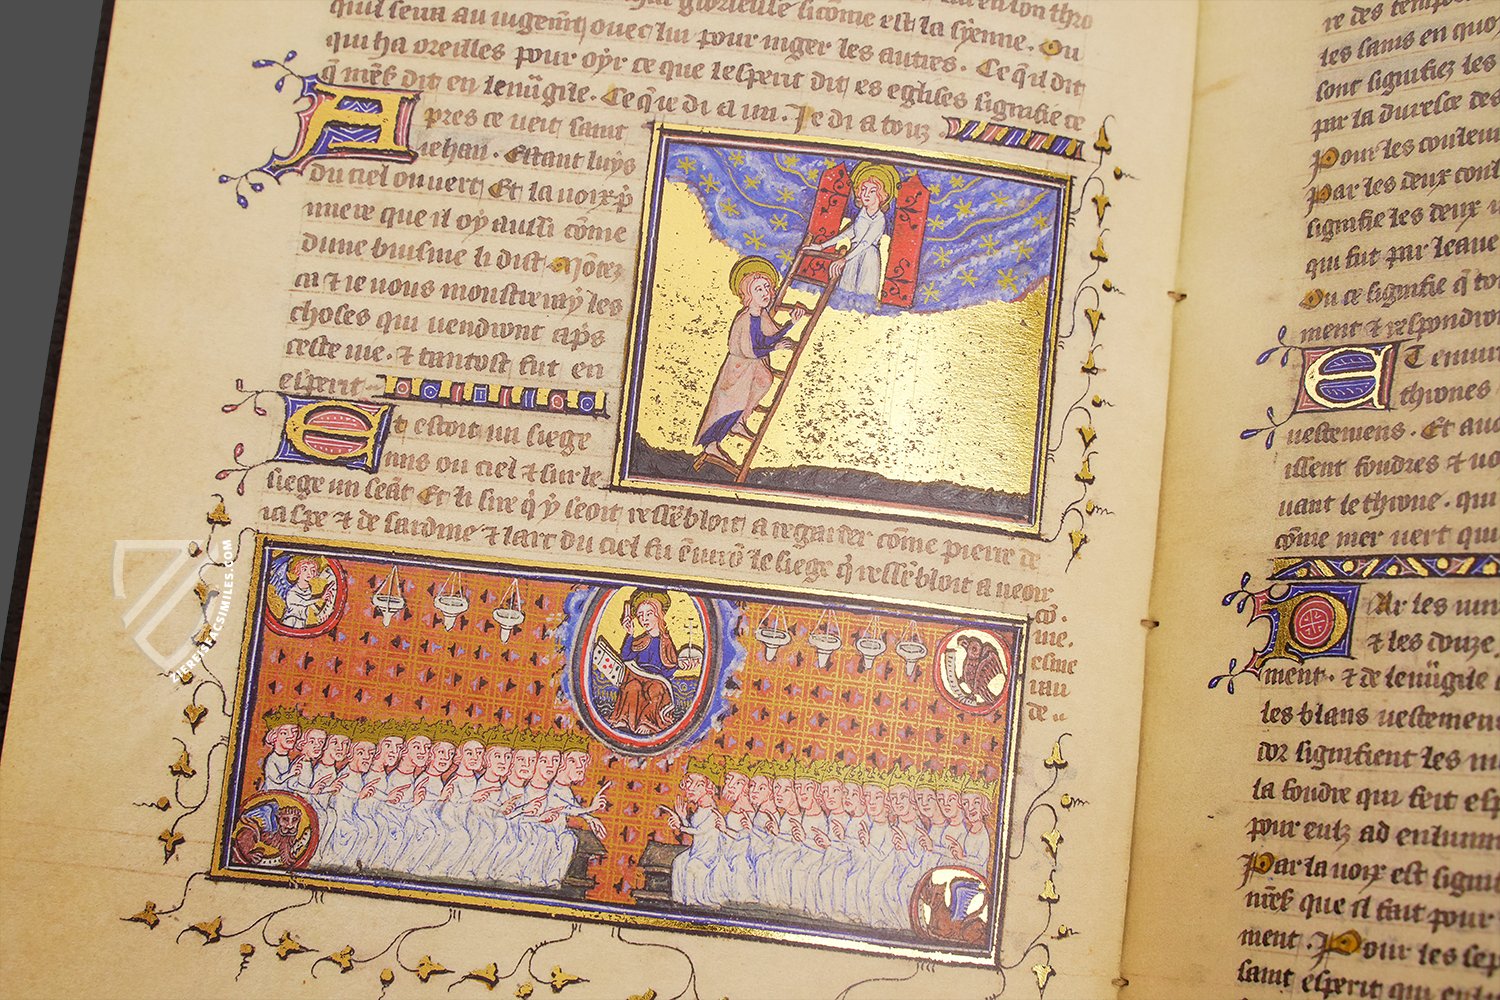 quil sera au iugemt ouec lui pour iuger les autres. Ou
qui ha oreilles pour oyr ce que lesperit dit es eglises signifie ce
q̄ mes dit en leuūgile. Ce q̄ ie di a un. Je di a touz
Apres ce ueit saint
iehan. Estant luys
du ciel ouuert Et la uoix p̄
miere que il oy aussi cōme
dune buisine li dist Mōtez
ca ⁊ ie uous moustreray les
choses qui uendront ap̄s
ceste uie. ⁊ tantost fut en
esperit
Et estoit un siege
mis ou ciel ⁊ sur le
siege un seāt Et li sire q̄ y seoit ressēbloit a regarder cōme pierre de
iaspe ⁊ de sardine ⁊ larc du ciel fu ēuirō le siege q̄ ressēbloit a
cō
me.
esme
rau
de
ZIEREIS FACSIMILES.COM
re des
les sains en quoy
sont signifiez les
par la duresce des
Pour les couleurs
Par les deux
signifie les deux
qui fut par leaue
Ou ce signifie q̄
ment ⁊ respondir
Et enuir
thrones
uestemens. Et
issent foudres ⁊
uant le throne. qui
cōme mer uert qui
Par les
⁊ les douze
ment. ⁊ de leuūgile
les blans uestemens
dor signifient les
la foudre qui feit
pour eulz ad enlumi
Par la uoix est signi
mes que il fait pour
ment. Pour les sep
saint esperit qui